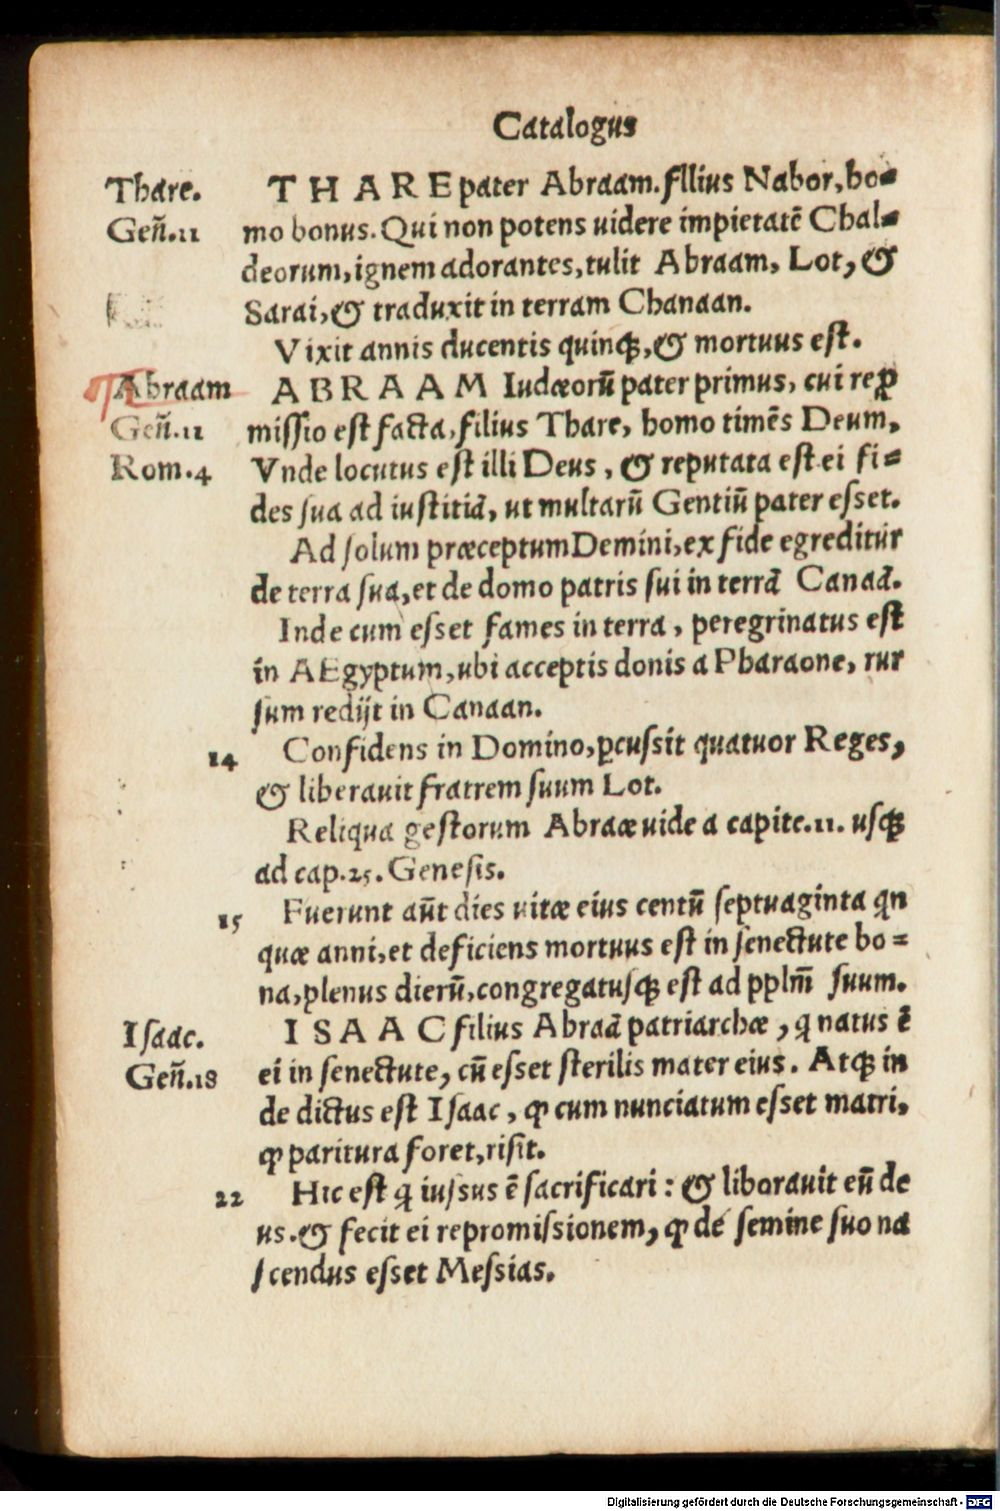 Catalogus
Thare. T H A R E pater Abraam. fIlius Nabor, ho=
Geñ.11 mo bonus. Qui non potens uidere impietatē Chal=
deorum, ignem adorantes, tulit Abraam, Lot, &
Sarai, & traduxit in terram Chanaan.
Vixit annis ducentis quinqꝫ, & mortuus est.
Abraam A B R A A M Iudæorū pater primus, cui reꝓ
Geñ.11 missio est facta, filius Thare, homo timēs Deum,
Rom.4 Vnde locutus est illi Deus, & reputata est ei fi=
des sua ad iustitiā, ut multarū Gentiū pater esset.
Ad solum præceptum Demini, ex fide egreditur
de terra sua, et de domo patris sui in terrā Canaā.
Inde cum esset fames in terra, peregrinatus est
in AEgyptum, ubi acceptis donis a Pharaone, rur
sum redijt in Canaan.
14 Confidens in Domino, ꝑcussit quatuor Reges,
& liberauit fratrem suum Lot.
Reliqua gestorum Abraæ uide a capite.11. usqꝫ
ad cap.25. Genesis.
15 Fuerunt aūt dies uitæ eius centū septuaginta qn
quæ anni, et deficiens mortuus est in senectute bo=
na, plenus dierū, congregatusqꝫ est ad pplm̄ suum.
Isaac. I S A A C filius Abraā patriarchæ, q natus ē
Geñ.18 ei in senectute, cū esset sterilis mater eius. Atqꝫ in
de dictus est Isaac, ꝙ cum nunciatum esset matri,
ꝙ paritura foret, risit.
22 Hic est q iussus ē sacrificari : & liborauit eū de
us. & fecit ei repromissionem, ꝙ de semine suo na
scendus esset Messias.
Digitalisierung gefördert durch die Deutsche Forschungsgemeinschaft - DFG